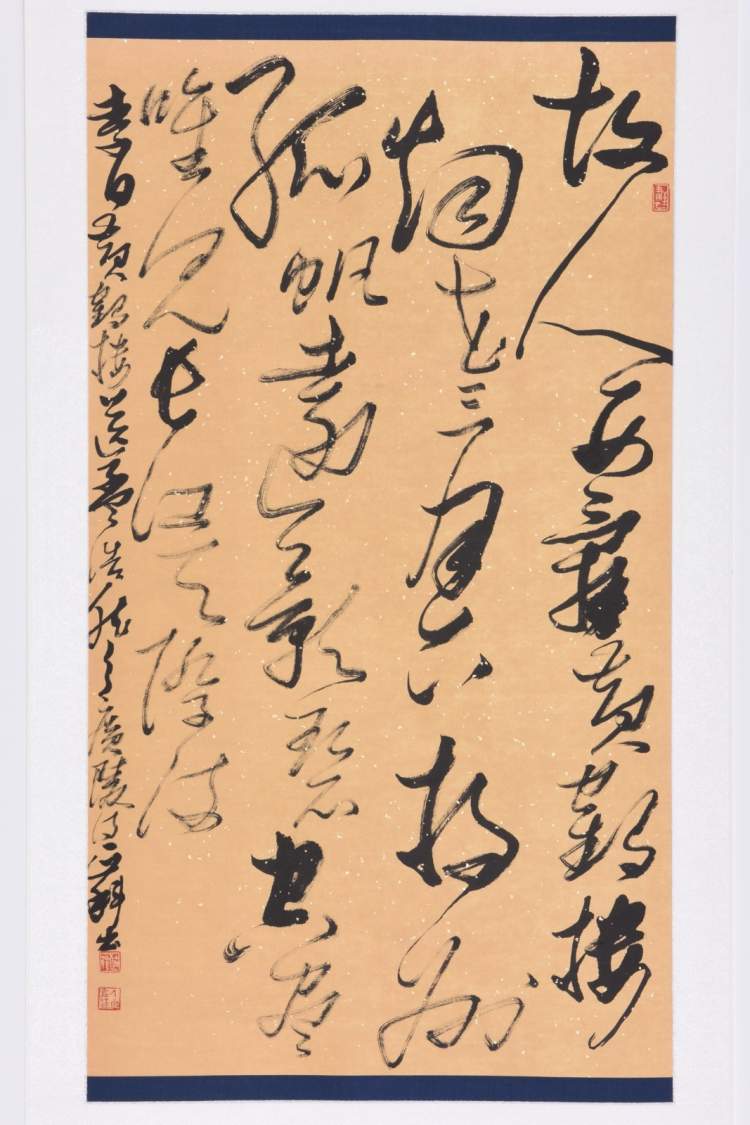 故人西辭黃鶴樓
烟花三月下揚州
孤帆遠影碧空盡
唯見長江天際流
李白黃鶴樓送孟浩然之廣陵詩 科書